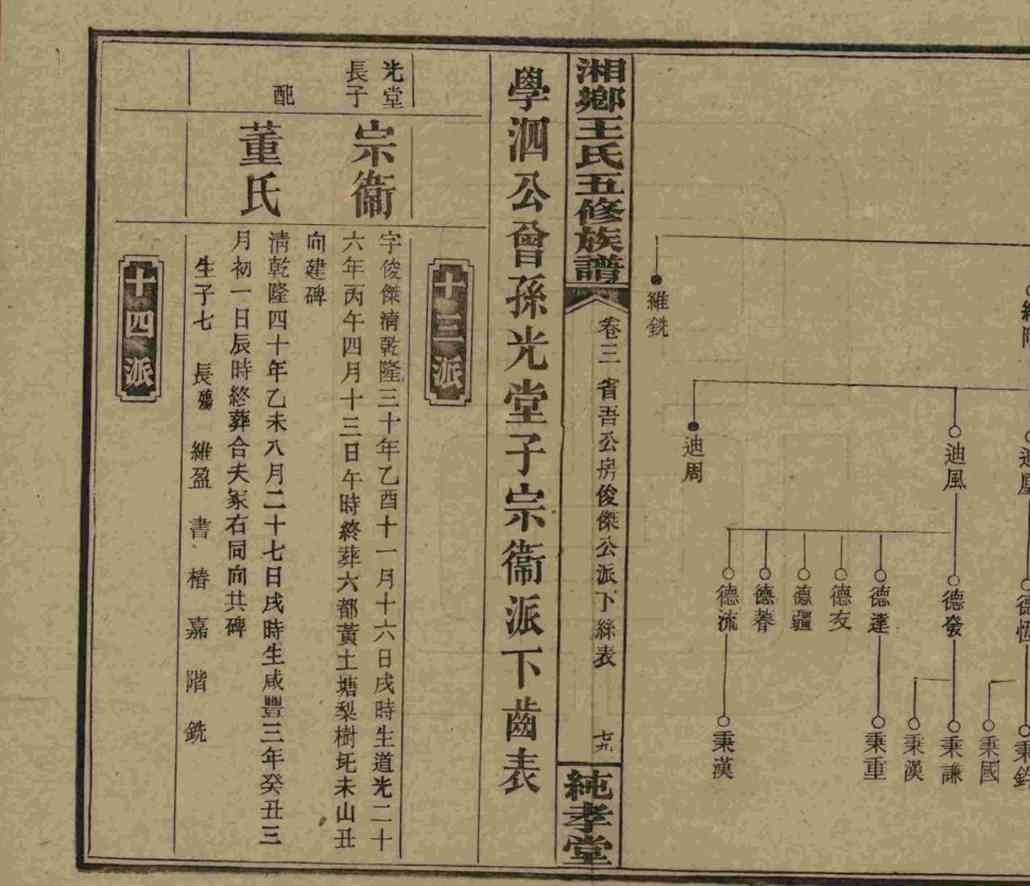 維銑
迪風
迪周
德發
德達
德友
德疆
德養
德流
秉國
秉謙
秉漢
秉重
秉漢
湘鄉王氏五修族譜
卷三 省吾公房俊傑公派下絲表
七九
純孝堂
學泗公曾孫光堂子宗衞派下齒表
十三派
光堂長子
宗衞
字俊傑淸乾隆三十年乙酉十一月十六日戌時生道光二十
六年丙午四月十三日午時終葬六都黃土塘梨樹坵未山丑
向建碑
配
董氏
淸乾隆四十年乙未八月二十七日戌時生咸豐三年癸丑三
月初一日辰時終葬合夫冢右同向共碑
生子七 長殤 維盈 書 椿 嘉 階 銑
十四派